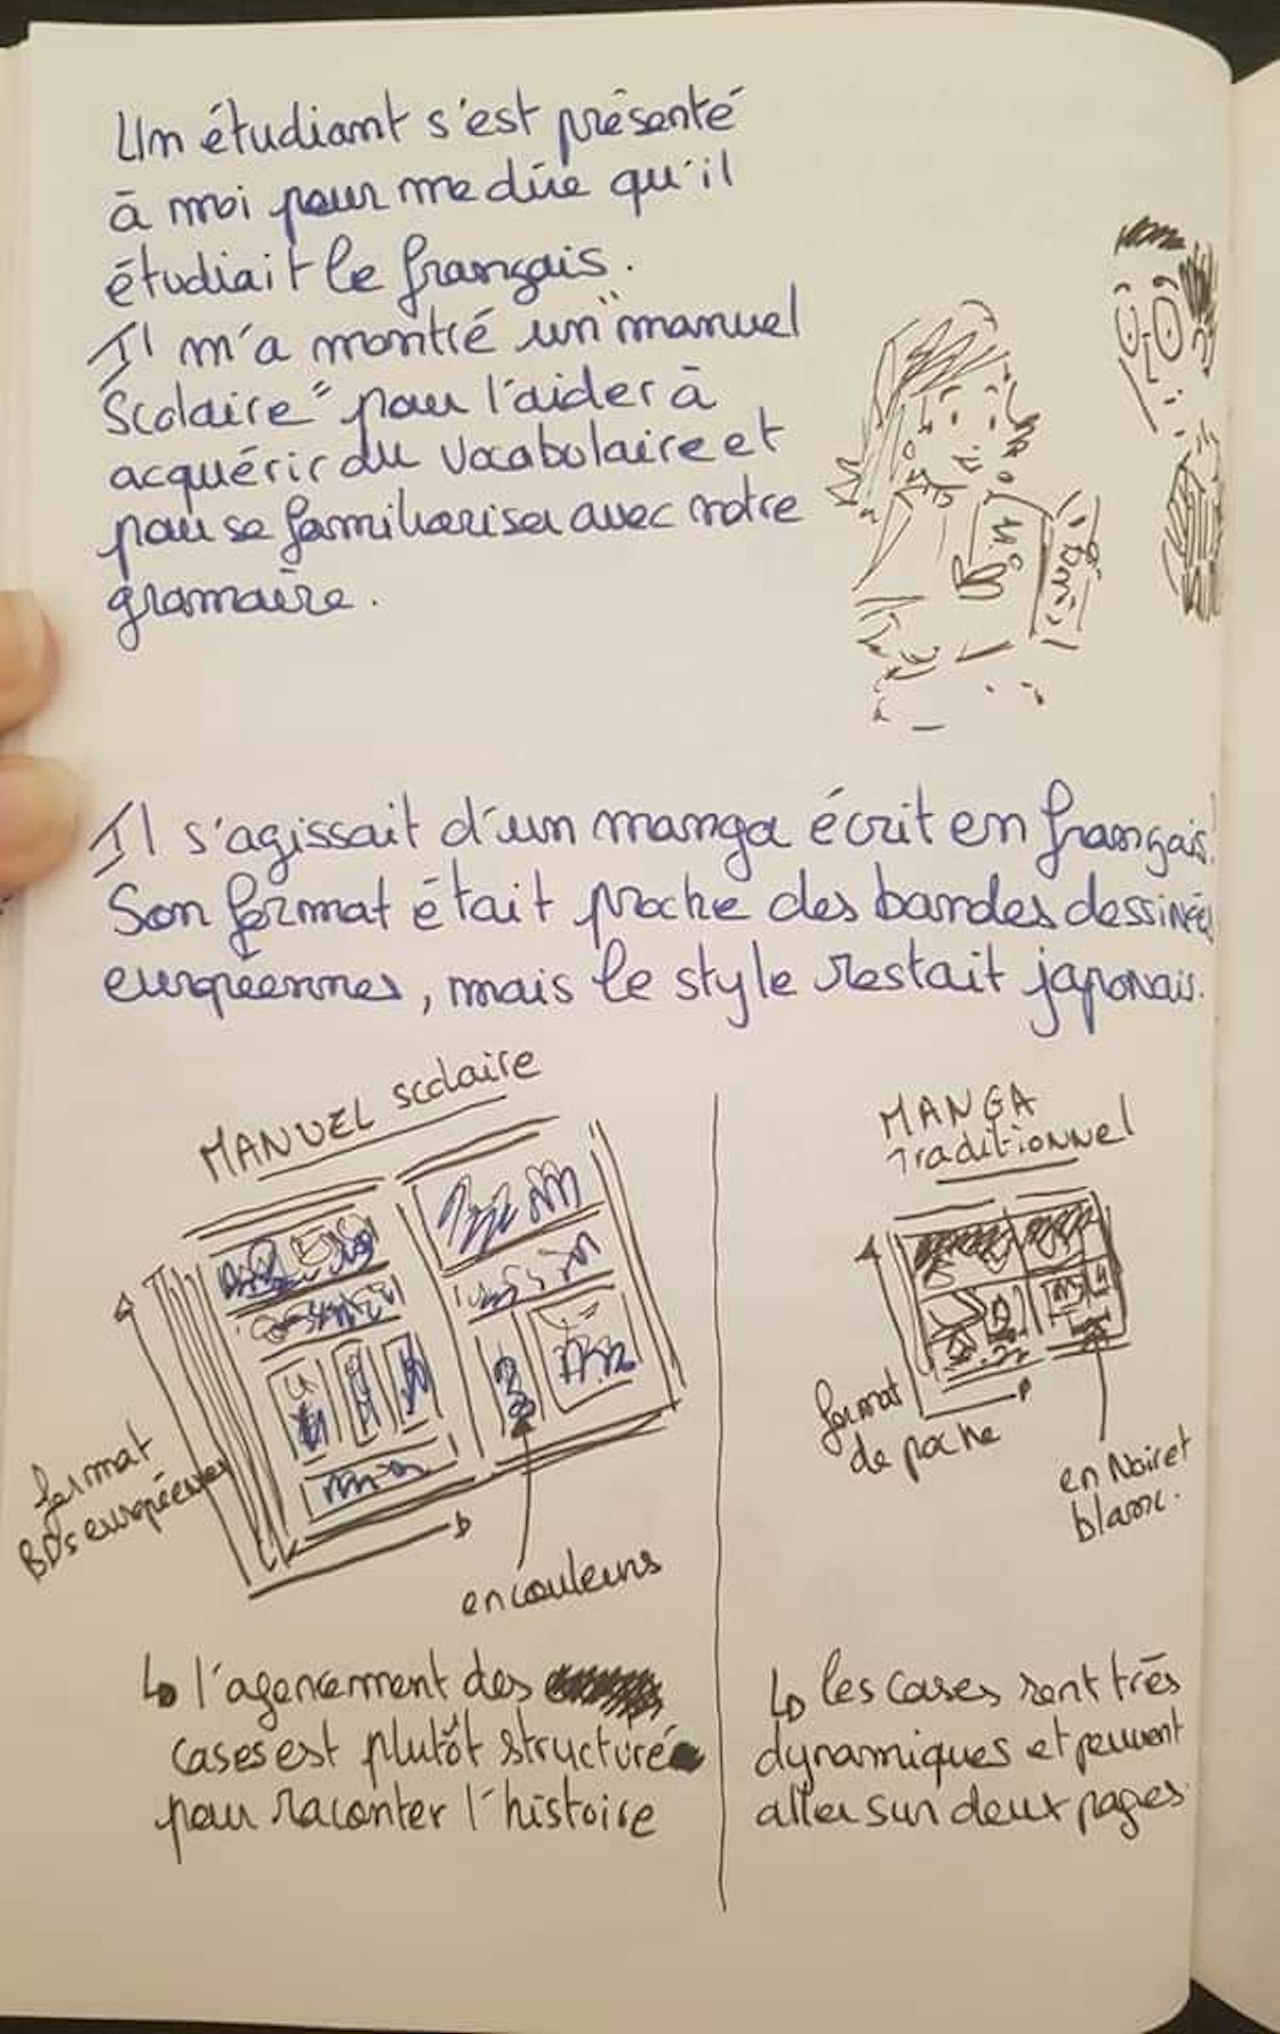 Un étudiant s'est présenté
à moi pour me dire qu'il
étudiait le français.
Il m'a montré un "manuel
Scolaire" pour l'aider à
acquérir du vocabulaire et
pour se familiariser avec notre
gramaire.
Il s'agissait d'un manga écrit en français!
Son format était proche des bandes dessinées
européennes, mais le style restait japonais.
MANUEL scolaire
format
BDs européennes
en couleurs
↳ l'agencement des
cases est plutôt structuré
pour raconter l'histoire
MANGA
Traditionnel
format
de poche
en Noir et
blanc.
↳ les cases sont très
dynamiques et peuvent
aller sur deux pages